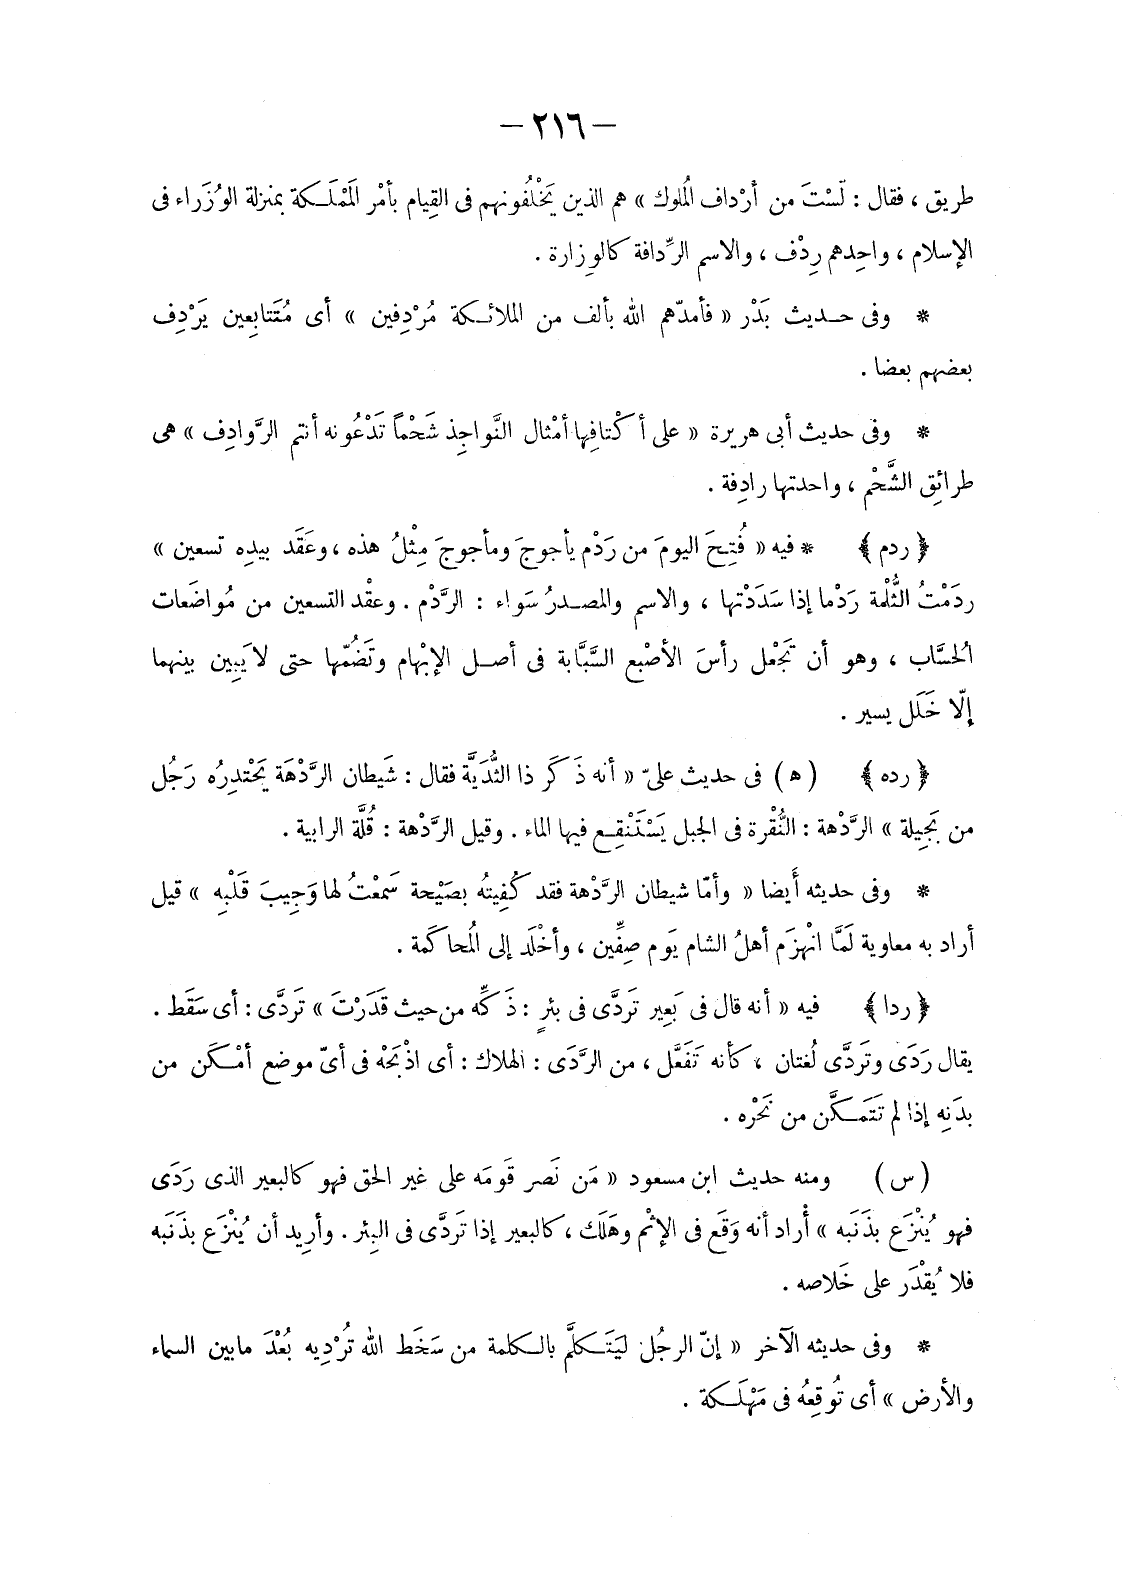 — ٢١٦ —
طريق ، فقال : لَسْتَ من أرْداف الُملوك » هم الذين يَخْلُفُونهم فى القِيام بأمْر الَمْلَـكة بمنزلة الوُزَراء فى
الإسلام ، واحِدهم رِدْف ، والاسم الرِّدافة كالوِزارة .
* وفى حـديث بَدْر « فأمدّهم الله بألف من الملائـكة مُرْدِفين » أى مُتَتابِعين يَرْدِف
بعضهم بعضا .
* وفى حديث أبى هريرة « على أكْتافِها أمْثال النَّواجِذ شَحْماً تَدْعُونه أنتم الرَّوادِف » هى
طرائِق الشَّحْم ، واحدتها رادِفة .
﴿ ردم ﴾ * فيه « فُتِحَ اليومَ من رَدْم يأجوجَ ومأجوجَ مِثْلُ هذه ، وعَقَد بيدِه تسعين »
ردَمْتُ الثُّلْمة رَدْما إذا سَدَدْتها ، والاسم والمصـدرُ سَواء : الرَّدْم . وعقْد التسعين من مُواضَعات
الُحسَّاب ، وهو أن تَجْعل رأسَ الأصْبع السَّبَّابة فى أصـل الإبْهام وتَضُمّها حتى لا يَبِين بينهما
إلّا خَلَل يسير .
﴿ رده ﴾ ( ﻫ ) فى حديث علىّ « أنه ذَكَر ذا الثُّدَيَّة فقال : شَيطان الرَّدْهَة يَحْتدِرُه رَجُل
من بَجِيلة » الرَّدْهة : النُّقْرة فى الجبل يَسْتَنْقِـع فيها الماء . وقيل الرَّدْهة : قُلَّة الرابية .
* وفى حديثه أَيضا « وأمّا شيطان الرَّدْهة فقد كُفِيتُه بصَيْحة سَمعْتُ لها وَجِيبَ قَلْبِه » قيل
أراد به معاوية لَمَّا انْهزَم أهلُ الشام يَوم صِفِّين ، وأخْلَد إلى الُمحاكَمة .
﴿ ردا ﴾ فيه « أنه قال فى بَعِير تَردَّى فى بئرٍ : ذَكِّه من حيث قَدَرْتَ » تَردَّى : أى سَقَط .
يقال رَدَى وتَردَّى لُغتان ، كأنه تَفَعَّل ، من الرَّدَى : الهلاك : أى اذْبَحْه فى أىّ موضع أمْـكَن من
بدَنِه إذا لم تَتَمـكَّن من نَحْره .
( س ) ومنه حديث ابن مسعود « مَن نَصر قَومَه على غير الحق فهو كالبعير الذى رَدَى
فهو يُنْزَع بذَنَبه » أراد أنه وَقَع فى الإثْم وهَلَك ، كالبعير إذا تَردَّى فى البِئر . وأرِيد أن يُنْزَع بذَنَبه
فلا يُقْدَر على خَلاصه .
* وفى حديثه الآخر « إنّ الرجُل ليَتَـكلَّم بالـكلمة من سَخَط الله تُرْدِيه بُعْدَ مابين السماء
والأرض » أى تُوقِعُه فى مَهْلَـكة .